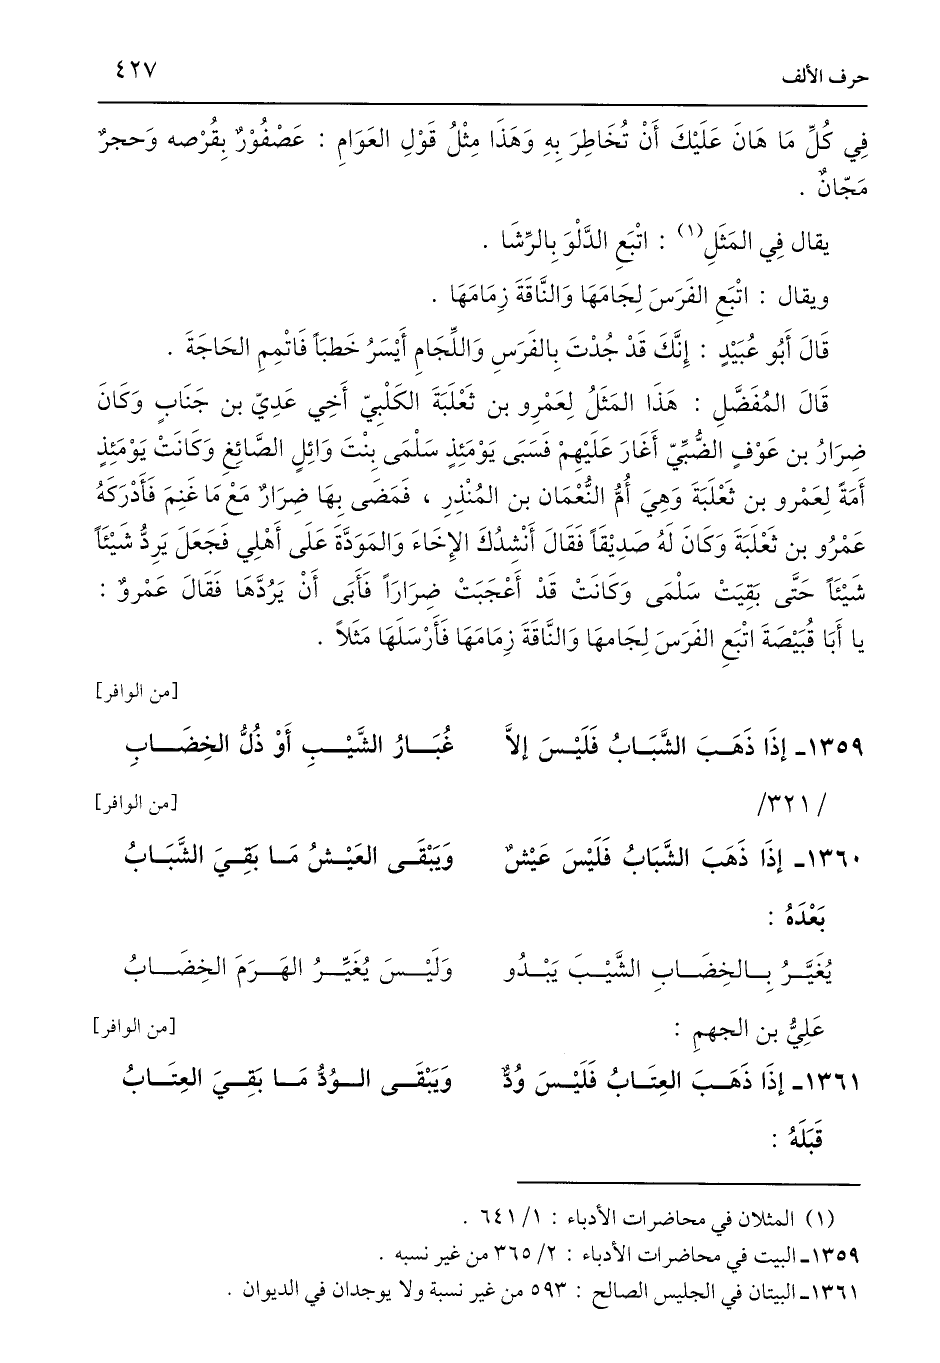 حرف الألف ٤٢٧
فِي كُلِّ مَا هَانَ عَلَيْكَ أَنْ تُخَاطِرَ بِهِ وَهَذَا مِثْلُ قَوْلِ العَوَامِ : عَصْفُوْرٌ بِقُرْصه وَحجرٌ
مَجّانٌ .
يقال فِي المَثَلِ(١) : اتْبَعِ الدَّلْوَ بِالرِّشَا .
ويقال : اتْبَعِ الفَرَسَ لِجَامَهَا وَالنَّاقَةَ زِمَامَهَا .
قَالَ أَبُو عُبَيْدٍ : إِنَّكَ قَدْ جُدْتَ بِالفَرَسِ وَاللِّجَامِ أَيْسَرُ خَطبَاً فَاتْمِمِ الحَاجَةَ .
قَالَ المُفَضَّلِ : هَذَا المَثَلُ لِعَمْرِو بن ثَعْلَبَةَ الكَلْبِيِّ أَخِي عَدِيّ بن جَنَابٍ وَكَانَ
ضِرَارُ بن عَوْفٍ الضُّبِّيِّ أَغَارَ عَلَيْهِمْ فَسَبَى يَوْمَئِذٍ سَلْمَى بِنْتَ وَائِلٍ الصَّائِغِ وَكَانَتْ يَوْمَئِذٍ
أَمَةً لِعَمْرِو بن ثَعْلَبَةَ وَهِيَ أُمُّ النُّعْمَان بن المُنْذِرِ ، فَمَضَى بِهَا ضِرَارٌ مَعْ مَا غَنِمَ فَأَدْرَكَهُ
عَمْرُو بن ثَعْلَبَةَ وَكَانَ لَهُ صَدِيْقَاً فَقَالَ أَنْشِدُكَ الإِخَاءَ وَالمَوَدَّةَ عَلَى أَهْلِي فَجَعَلَ يَرِدُّ شَيْئَاً
شَيْئَاً حَتَّى بَقِيَتْ سَلْمَى وَكَانَتْ قَدْ أَعْجَبَتْ ضِرَارَاً فَأَبَى أَنْ يَرُدَّهَا فَقَالَ عَمْروٌ :
يا أَبَا قُبَيْصَةَ اتْبَعِ الفَرَسَ لِجَامهَا وَالنَّاقَةَ زِمَامَهَا فَأَرْسَلَهَا مَثَلاً .
[من الوافر]
١٣٥٩ـ إِذَا ذَهَبَ الشَّبَابُ فَلَيْسَ إلاَّ غُبَارُ الشَّيْبِ أَوْ ذُلُّ الخِضَابِ
/٣٢١/ [من الوافر]
١٣٦٠ـ إِذَا ذَهَبَ الشَّبَابُ فَلَيْسَ عَيْشٌ وَيَبْقَى العَيْشُ مَا بَقِيَ الشَّبَابُ
بَعْدَهُ :
يُغَيَّرُ بِالخِضَابِ الشَّيْبَ يَبْدُو وَلَيْسَ يُغَيِّرُ الهَرَمَ الخِضَابُ
عَلِيُّ بن الجهمِ : [من الوافر]
١٣٦١ـ إِذَا ذَهَبَ العِتَابُ فَلَيْسَ وُدٌّ وَيَبْقَى الوُدُّ مَا بَقِيَ العِتَابُ
قَبَلَهُ :
(١) المثلان في محاضرات الأدباء : ١/ ٦٤١ .
١٣٥٩ـ البيت في محاضرات الأدباء : ٢/ ٣٦٥ من غير نسبه .
١٣٦١ـ البيتان في الجليس الصالح : ٥٩٣ من غير نسبة ولا يوجدان في الديوان .